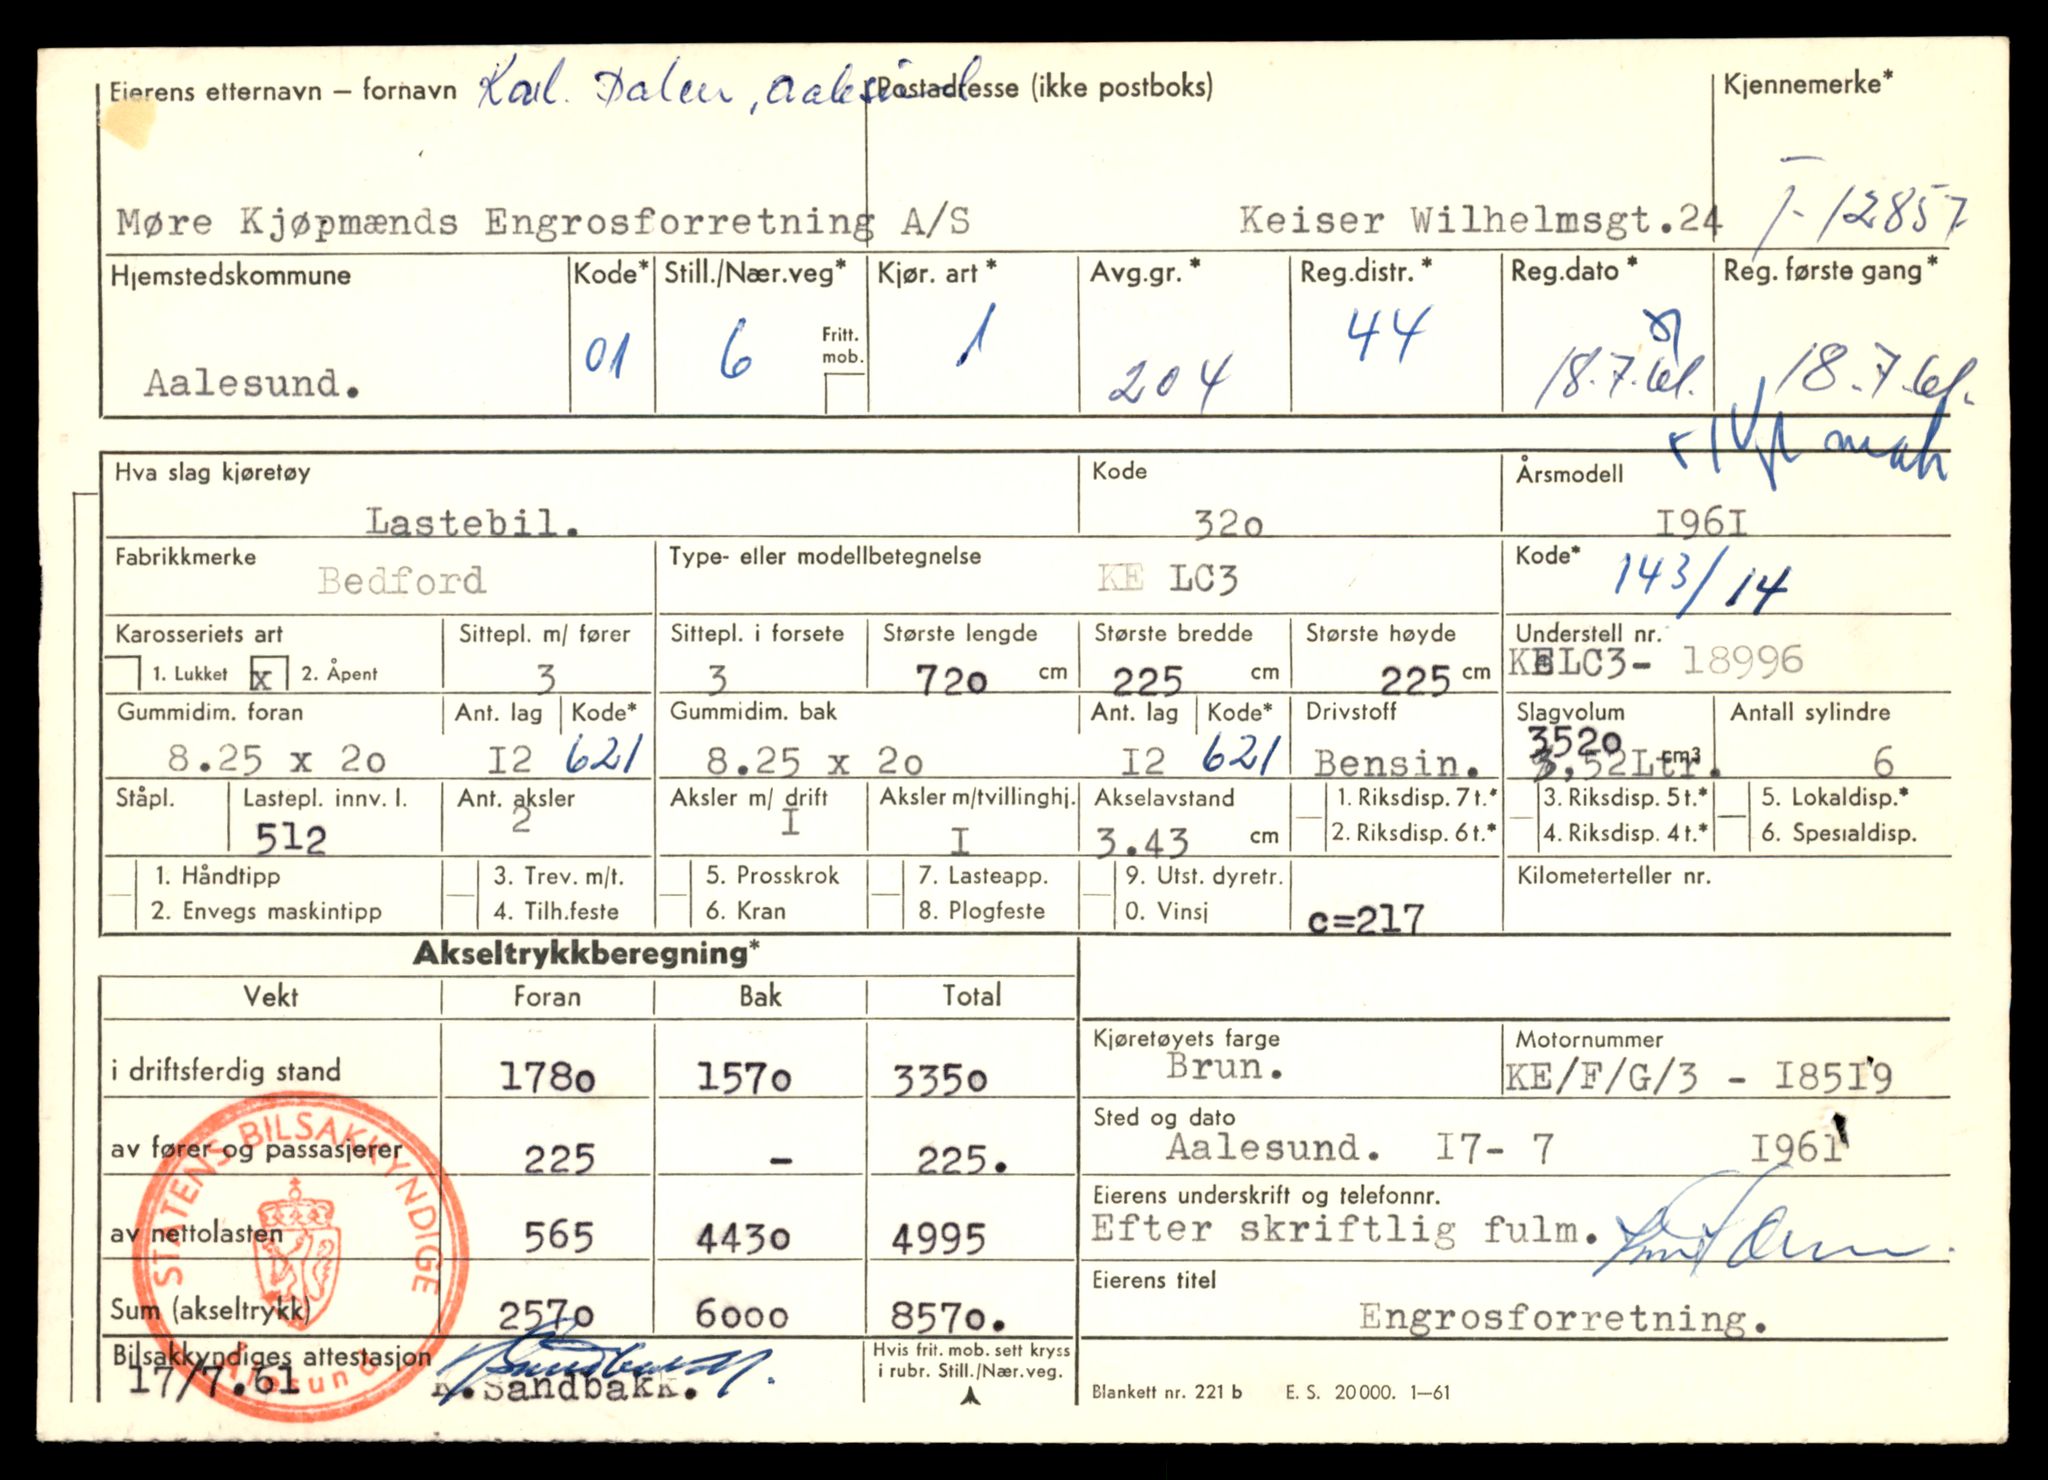 Eierens etternavn – fornavn Karl. Dalen, Aalesund Postadresse (ikke postboks) Kjennemerke*
Møre Kjøpmænds Engrosforretning A/S Keiser Wilhelmsgt.24 T-12857
Hjemstedskommune Kode* Still./Nær.veg* Kjør. art* Avg.gr.* Reg.distr.* Reg.dato* Reg. første gang*
Aalesund. 01 6 Fritt. mob. 1 204 44 18.7.61. 18.7.61.
Hva slag kjøretøy Kode Årsmodell
Lastebil. 320 I96I
Fabrikkmerke Type- eller modellbetegnelse Kode*
Bedford KE LC3 143/14
Karosseriets art Sittepl. m/ fører Sittepl. i forsete Største lengde Største bredde Største høyde Understell nr.
1. Lukket x 2. Åpent 3 3 720 cm 225 cm 225 cm KELC3- 18996
Gummidim. foran Ant. lag Kode* Gummidim. bak Ant. lag Kode* Drivstoff Slagvolum Antall sylindre
3520
8.25 x 20 I2 621 8.25 x 20 I2 621 Bensin. 3,52Ltr. cm3 6
Ståpl. Lastepl. innv. l. Ant. aksler Aksler m/ drift Aksler m/tvillinghj. Akselavstand 1. Riksdisp. 7 t.* 3. Riksdisp. 5 t.* 5. Lokaldisp.*
512 2 I I 3.43 cm 2. Riksdisp. 6 t.* 4. Riksdisp. 4 t.* 6. Spesialdisp.
1. Håndtipp 3. Trev. m/t. 5. Prosskrok 7. Lasteapp. 9. Utst. dyretr. Kilometerteller nr.
2. Envegs maskintipp 4. Tilh.feste 6. Kran 8. Plogfeste 0. Vinsj c=217
Akseltrykkberegning*
Vekt Foran Bak Total
i driftsferdig stand 1780 1570 3350
Kjøretøyets farge Motornummer
Brun. KE/F/G/3 - I85I9
av fører og passasjerer 225 - 225.
Sted og dato
Aalesund. I7- 7 1961
av nettolasten 565 4430 4995
Eierens underskrift og telefonnr.
Efter skriftlig fulm.
Sum (akseltrykk) 2570 6000 8570.
Eierens titel
Engrosforretning.
Bilsakkyndiges attestasjon
17/7.61 K.Sandbakk.
Hvis frit. mob. sett kryss
i rubr. Still./Nær.veg.
Blankett nr. 221 b E. S. 20 000. 1–61
STATENS BILSAKKYNDIGE
Ålesund